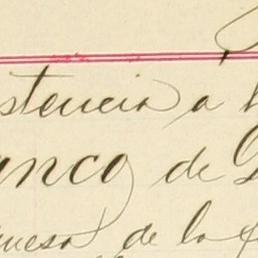 stencia a
anco de
quesa de la